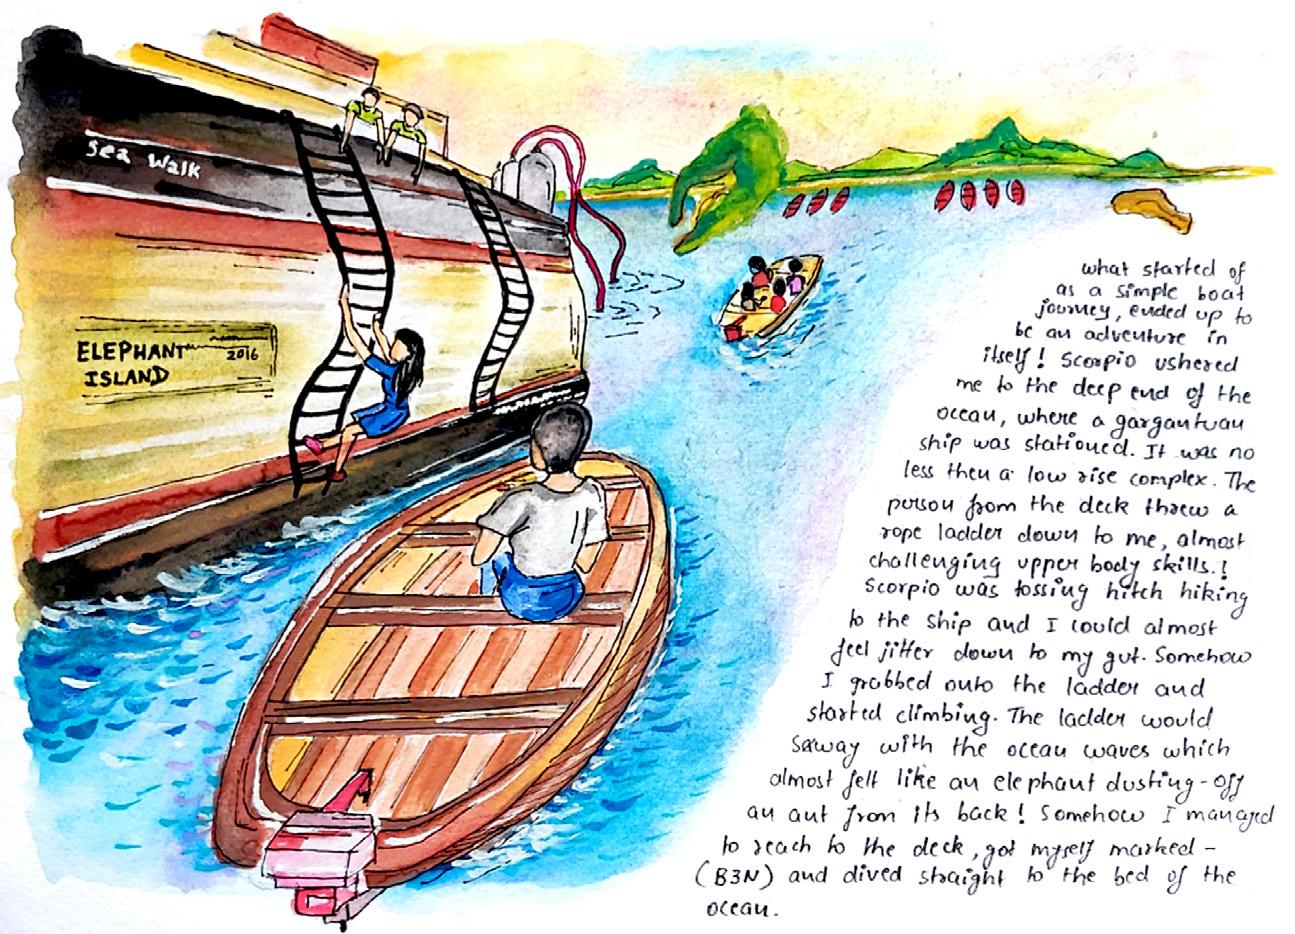 Sea Walk
ELEPHANT
2016
ISLAND
what started of
as a simple boat
journey, ended up to
be an adventure in
itself! Scorpio ushered
me to the deep end of the
ocean, where a gargantuan
ship was stationed. It was no
less then a low rise complex. The
person from the deck threw a
rope ladder down to me, almost
challenging upper body skills.!
Scorpio was tossing hitch hiking
to the ship and I could almost
feel jitter down to my gut. Somehow
I grabbed onto the ladder and
started climbing. The ladder would
saway with the ocean waves which
almost felt like an elephant dusting-off
an ant from its back! Somehow I managed
to reach to the deck, got myself marked -
(B3N) and dived straight to the bed of the
ocean.